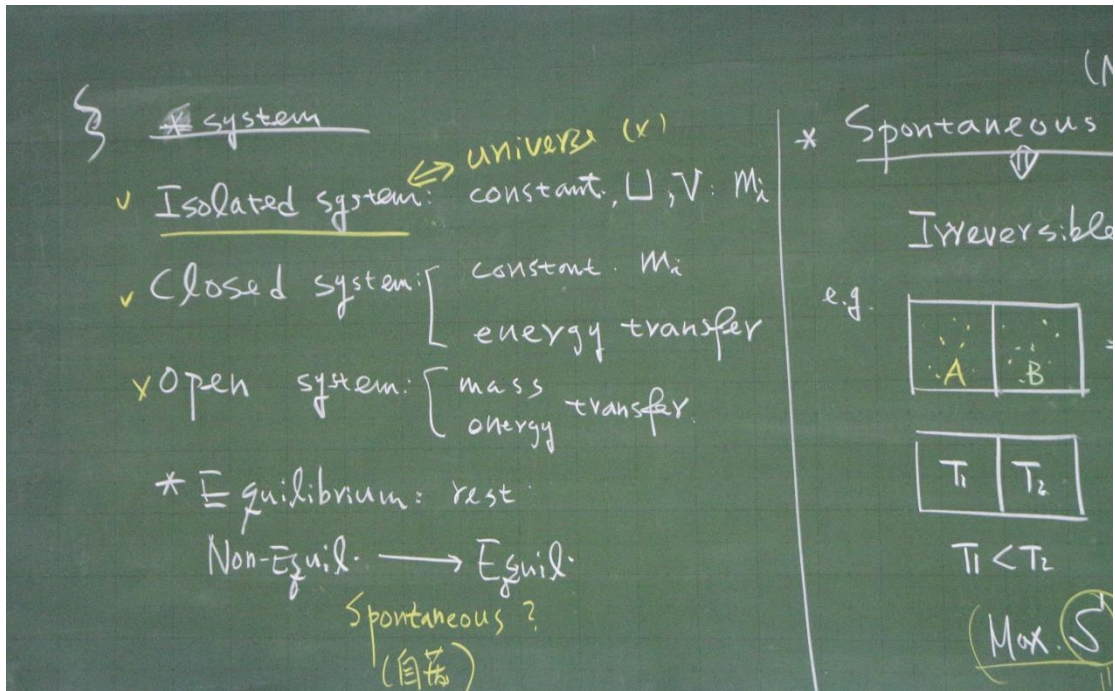 * system
univers (x)
Isolated system: constant, U, V. mi
Closed system: constant. mi
energy transfer
Open system: mass
energy transfer.
* Equilibrium: rest.
Non-Equil. → Equil.
Spontaneous?
(自發)
* Spontaneous
Irreversible
e.g.
A B
T1 T2
T1 < T2
(Max. S